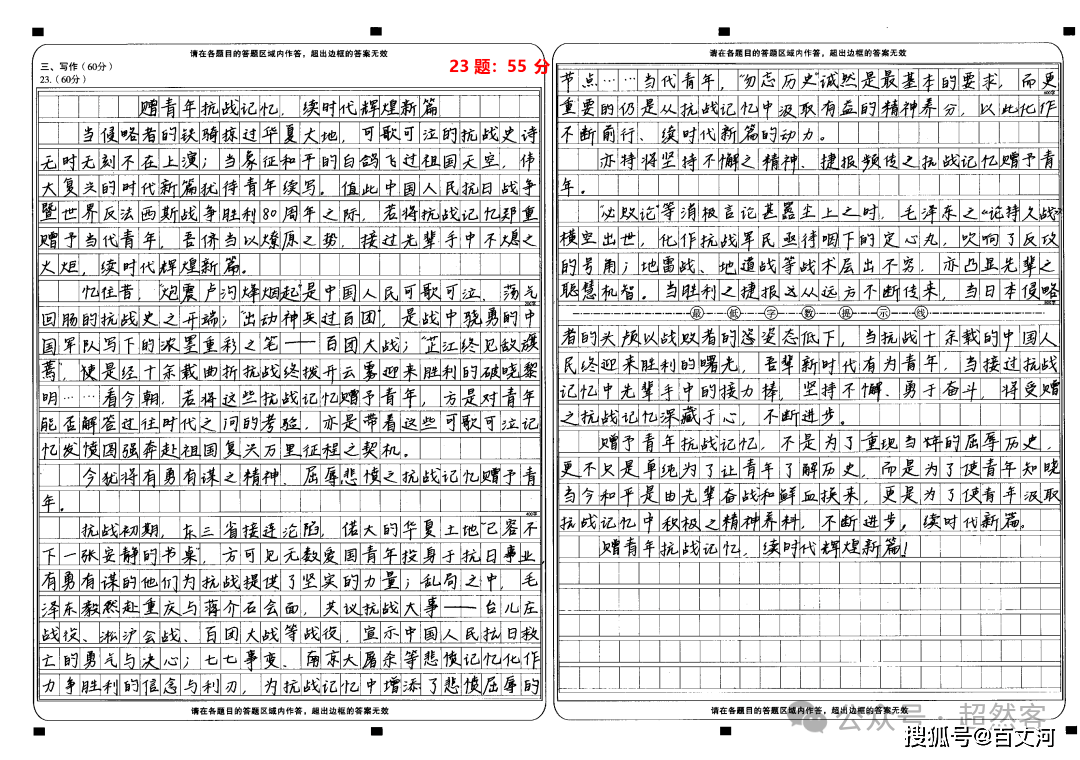 请在各题目的答题区域内作答，超出边框的答案无效
三、写作（60分）
23.（60分）
23题：55分
赠青年抗战记忆，续时代辉煌新篇
当侵略者的铁骑掠过华夏大地，可歌可泣的抗战史诗
无时无刻不在上演；当象征和平的白鸽飞过祖国天空，伟
大复兴的时代新篇犹待青年续写。值此中国人民抗日战争
暨世界反法西斯战争胜利80周年之际，若将抗战记忆郑重
赠予当代青年，吾侪当以燎原之势，接过先辈手中不熄之
火炬，续时代辉煌新篇。
忆往昔，“炮震卢沟烽烟起”是中国人民可歌可泣、荡气
回肠的抗战史之开端；“出动神兵过百团”，是战中骁勇的中
国军队写下的浓墨重彩之笔——百团大战；“芷江终见敌旗
蔫”，便是经十余载曲折抗战终拨开云雾迎来胜利的破晓黎
明……看今朝，若将这些抗战记忆赠予青年，方是对青年
能否解答过往时代之问的考验，亦是带着这些可歌可泣记
忆发愤图强奔赴祖国复兴万里征程之契机。
今犹将有勇有谋之精神、屈辱悲愤之抗战记忆赠予青
年。
400字
抗战初期，东三省接连沦陷，偌大的华夏土地“已容不
下一张安静的书桌”，方可见无数爱国青年投身于抗日事业，
有勇有谋的他们为抗战提供了坚实的力量；乱局之中，毛
泽东毅然赴重庆与蒋介石会面，共议抗战大事——台儿庄
战役、淞沪会战、百团大战等战役，宣示中国人民抗日救
亡的勇气与决心；七七事变、南京大屠杀等悲愤记忆化作
力争胜利的信念与利刃，为抗战记忆中增添了悲愤屈辱的
请在各题目的答题区域内作答，超出边框的答案无效
请在各题目的答题区域内作答，超出边框的答案无效
节点……当代青年，“勿忘历史”诚然是最基本的要求，而更
重要的仍是从抗战记忆中汲取有益的精神养分，以此化作
不断前行、续时代新篇的动力。
亦持将坚持不懈之精神、捷报频传之抗战记忆赠予青
年。
“必败论”等消极言记甚嚣尘上之时，毛泽东之“论持久战”
横空出世，化作抗战军民亟待咽下的定心丸，吹响了反攻
的号角；地雷战、地道战等战术层出不穷，亦凸显先辈之
聪慧机智。当胜利之捷报这从远方不断传来，当日本侵略
最低字数提示线
者的头颅以战败者的姿态低下，当抗战十余载的中国人
民终迎来胜利的曙光，吾辈新时代有为青年，当接过抗战
记忆中先辈手中的接力棒，坚持不懈、勇于奋斗，将受赠
之抗战记忆深藏于心，不断进步。
赠予青年抗战记忆，不是为了重现当年的屈辱历史，
更不只是单纯为了让青年了解历史，而是为了使青年知晓
当今和平是由先辈奋战和鲜血换来，更是为了使青年汲取
抗战记忆中积极之精神养料，不断进步，续时代新篇。
赠青年抗战记忆，续时代辉煌新篇！
请在各题目的答题区域内作答，超出边框的答案无效
公众号·超然客
搜狐号@百丈河